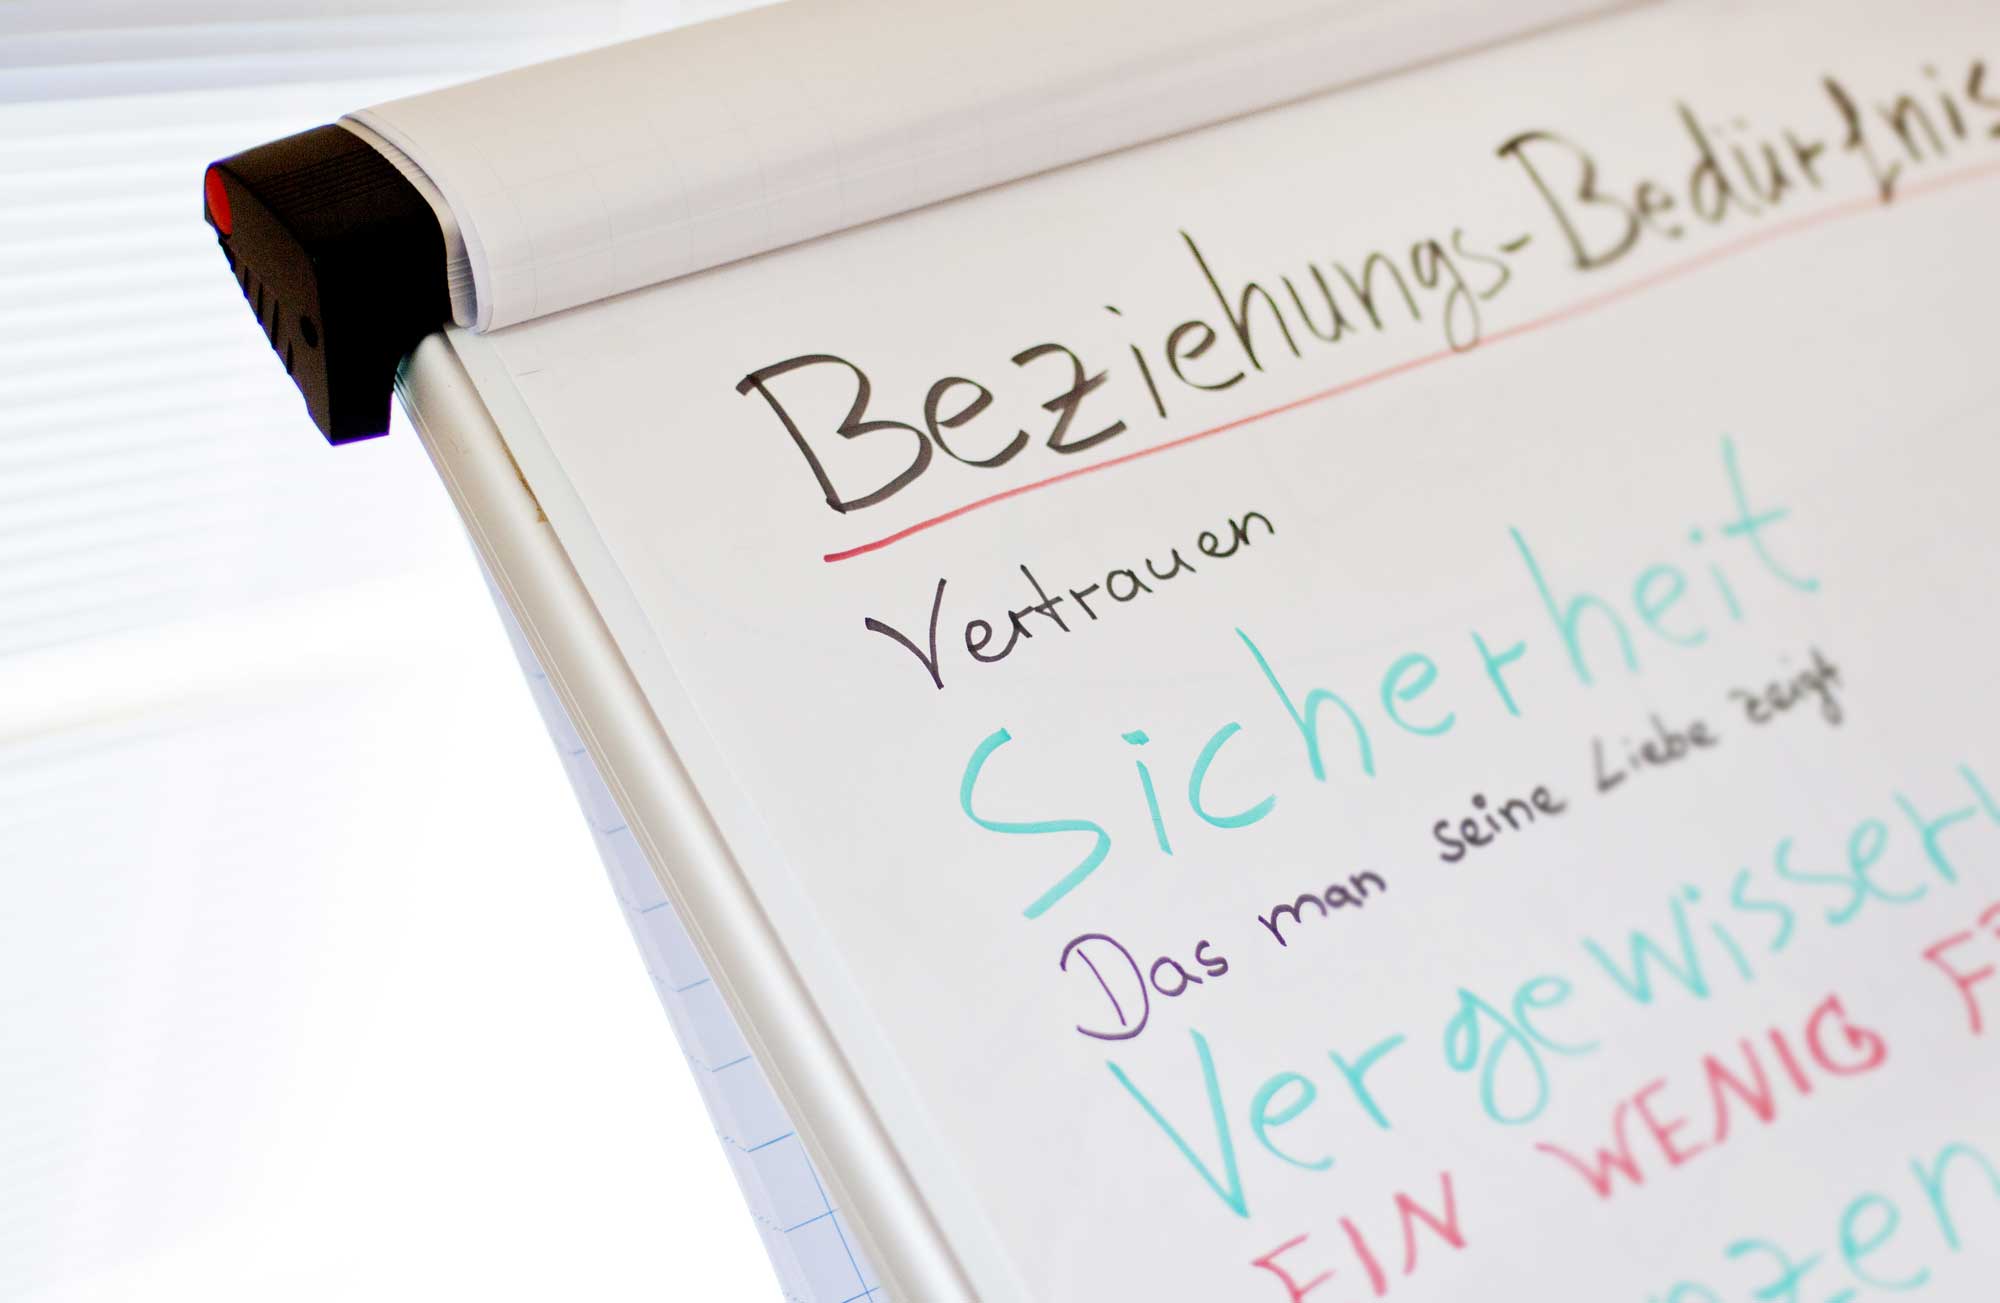 Beziehungs-Bedürfnis
Vertrauen
Sicherheit
Das man seine Liebe zeigt
Vergewisser
EIN WENIG